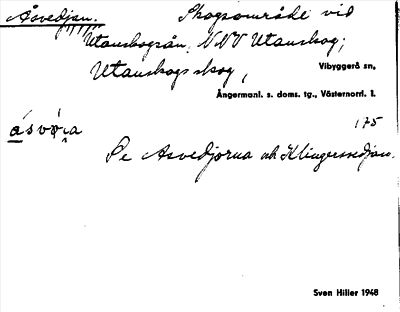 Åsvedjan. Skogsområde vid
Utanskogsån, NNV Utanskog;
Utanskogs skog, Vibyggerå sn,
Ångermanl. s. doms. tg., Västernorrl. l.
175
Se Asvedjorna och Klingersvedjan.
Sven Hiller 1948